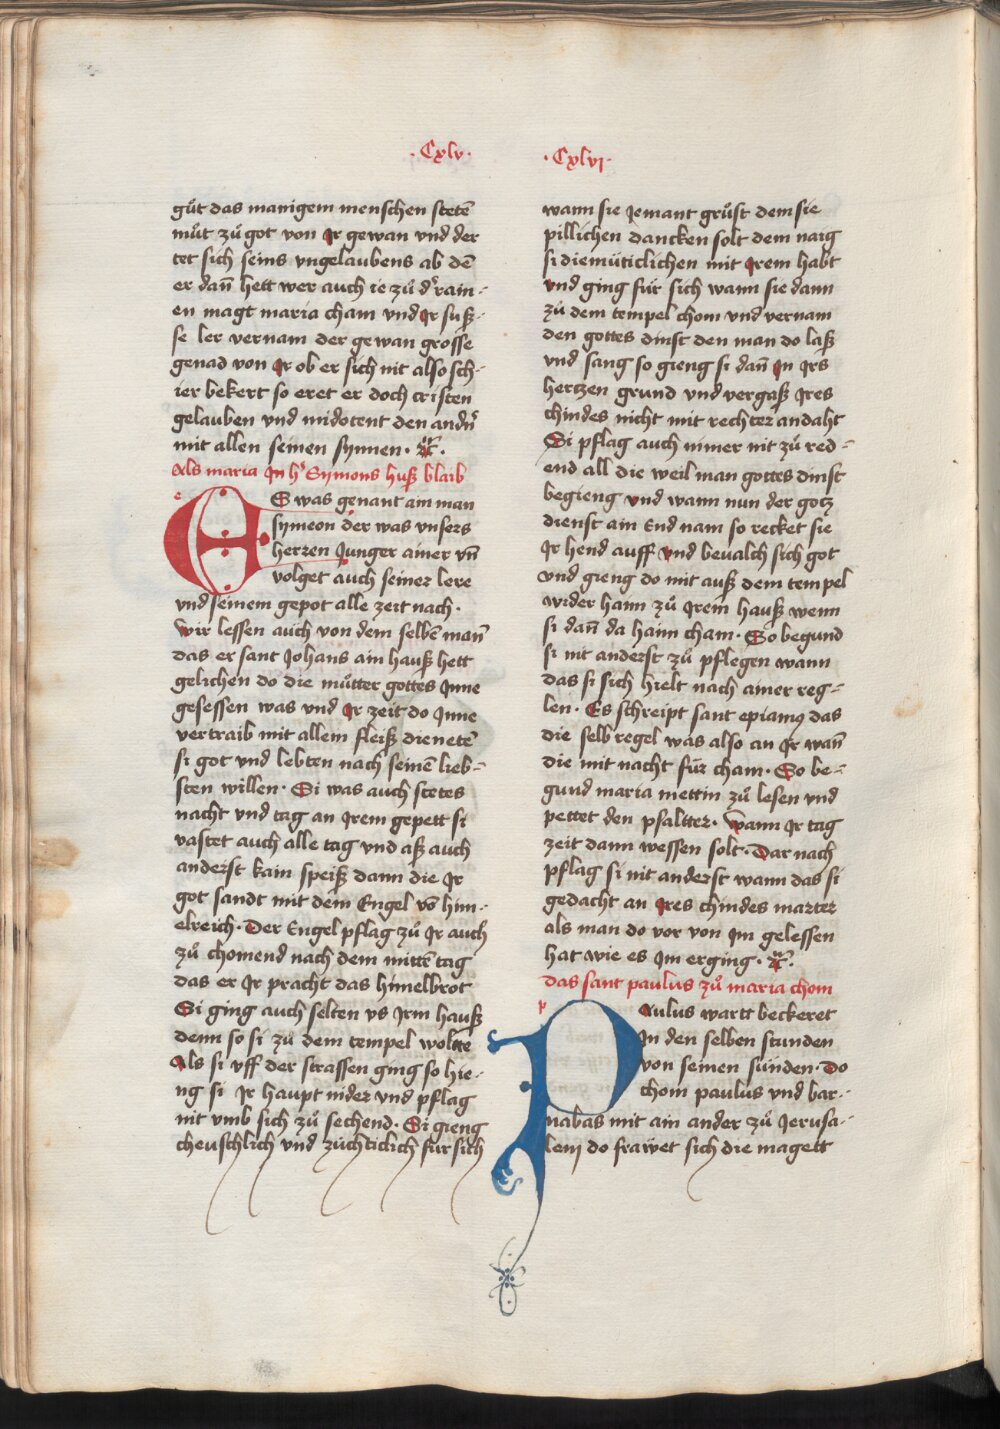 · Cxlv ·
gůt das manigem menschen stetē
můt zů got von Jr gewan vnd der
tet sich seins vngelaubens ab dē
er dañ hett wer auch ie zů d͛ rain-
en magt maria cham vnd Jr suß-
se ler vernam der gewan grosse
genad von Jr ob er sich nit also sch-
ier bekert so eret er doch cristen
gelauben vnd midotent den andn͛
mit allen seinen synnen ·
Als maria Jn h͛ Symons huß blaib
ES was genant am man
symeon der was vnsers
herren Junger ainer vñ
volget auch seiner lere
vnd seinem gepot alle zeit nach ·
wir lessen auch von dem selbē mañ
das er sant Johans ain hauß hett
gelichen do die můtter gottes Jnne
gesessen was vnd Jr zeit do Jnne
vertraib mit allem fleiß dienetē
si got vnd lebten nach seinē lieb-
sten willen · Si was auch stetes
nacht vnd tag an Jrem gepett si
vastet auch alle tag vnd aß auch
anderst kain speiß dann die Jr
got sandt mit dem Engel vō him-
elreich · Der Engel pflag zů Jr auch
zů chomend nach dem mittē tag
das er Jr pracht das himelbrot
Si ging auch selten vs Jrm hauß
denn so si zů dem tempel woltte
Als si vff der strassen ging so hie-
ng si Jr haupt nider vnd pflag
nit vmb sich zů sechend · Si gieng
cheuschlich vnd zuchticlich für sich
· Cxlvi ·
wann sie Jemant grůst dem sie
pillichen dancken solt dem naig
si diemüticlichen mit Jrem habt
vnd ging für sich wann sie dann
zů dem tempel chom vnd vernam
den gottes dinst den man do laß
vnd sang so gieng si dañ Jn Jrs
hertzen grund vnd vergaß Jres
chindes nicht mit rechter andaht
Si pflag auch nimer nit zů red-
end all die weil man gottes dinst
begieng vnd wann nun der gotz
dienst ain End nam so recket sie
Jr hend auff vnd beualch sich got
vnd gieng do mit auß dem tempel
wider hann zů Jrem hauß wenn
si dañ da haim cham · So begund
si nit anderst zů pflegen wann
das si sich hielt nach ainer reg-
len · Es schreipt sant epiamꝰ das
die selb regel was also an Jr wañ
die mit nacht für cham · So be-
gund maria mettin zů lesen vnd
pettet den psaltter · wann Jr tag
zeit dann wessen solt · Dar nach
pflag si nit anderst wann das si
gedacht an Jres chindes marter
als man do vor von Jm gelessen
hat wie es Jm erging ·
das sant paulus zů maria chom
PAulus wartt beckeret
Jn den selben stunden
von seinen sünden · Do
chom paulus vnd bar-
nabas mit ain ander zů Jerusa-
lem do frawet sich die magett